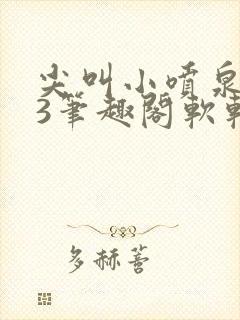 尖叫小喷泉
3笔趣阁软
多赫萻